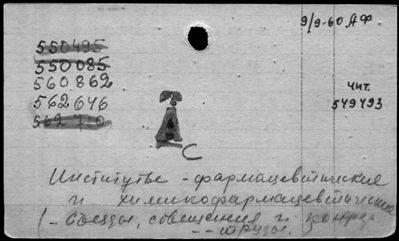 9/9-60 АФ.
550495
550085
560862
562646
56270
чит.
549493
С
Институтье - фармацевтические
и химикофармацевтические
(- съезды, совещания и конфер
-- труды.